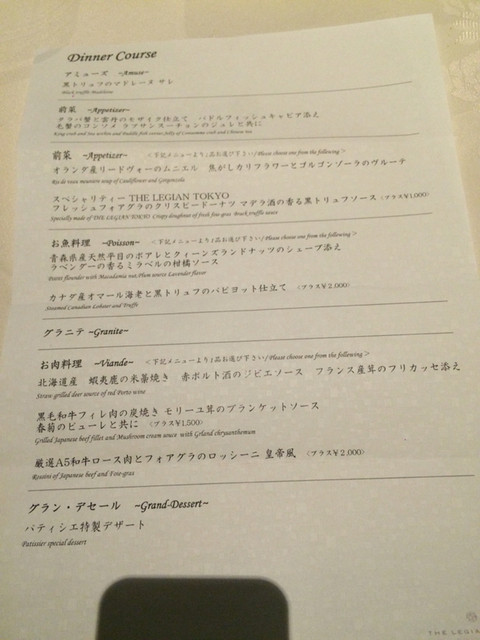 Dinner Course
アミューズ ~Amuse~
黒トリュフのマドレーヌ サレ
Black truffle Madeleine
前菜 ~Appetizer~
タラバ蟹と雲丹のモザイク仕立て パドルフィッシュキャビア添え
毛蟹のコンソメ ラプサンスーチョンのジュレと共に
King crab and Sea urchin and Paddle fish caviar jelly of Consomme crab and Chinese tea
前菜 ~Appetizer~ <下記メニューより1品お選び下さい/Please choose one from the following>
オランダ産リードヴォーのムニエル 焦がしカリフラワーとゴルゴンゾーラのヴルーテ
Ris de veau meuniere soup of Cauliflower and Gorgonzola
スペシャリティー THE LEGIAN TOKYO
フレッシュフォアグラのクリスピードーナツ マデラ酒の香る黒トリュフソース (プラス¥1,000)
Specialty made of THE LEGIAN TOKYO Crispy doughnut of fresh foie gras Black truffle sauce
お魚料理 ~Poisson~ <下記メニューより1品お選び下さい/Please choose one from the following>
青森県産天然平目のポアレとクィーンズランドナッツのシューブ添え
ラベンダーの香るミラベルの柑橘ソース
Poiret flounder with Macadamia nut Plum source Lavender flavor
カナダ産オマール海老と黒トリュフのパピヨット仕立て (プラス¥2,000)
Steamed Canadian Lobster and Truffe
グラニテ ~Granite~
お肉料理 ~Viande~ <下記メニューより1品お選び下さい/Please choose one from the following>
北海道産 蝦夷鹿の米藁焼き 赤ポルト酒のジビエソース フランス産茸のフリカッセ添え
Straw grilled deer source of red Porto wine
黒毛和牛フィレ肉の炭焼き モリーユ茸のブランケットソース
春菊のピューレと共に (プラス¥1,500)
Grilled Japanese beef fillet and Mushroom cream sauce with Grland chrysanthemum
厳選A5和牛ロース肉とフォアグラのロッシーニ 皇帝風 (プラス¥2,000)
Rossini of Japanese beef and Foie-gras
グラン・デセール ~Grand-Dessert~
パティシエ特製デザート
Patissier special dessert
THE LEGIA